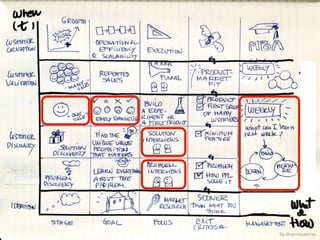 When
(-t!)
GROWTH
CUSTOMER
CREATION
OPERATIONAL
EFFICIENCY
& SCALABILITY
EXECUTION
MBA
CUSTOMER
VALIDATION
REPEATED
SALES
FUNNEL
PRODUCT-
MARKET
FIT
WEEKLY
ONE
SALE
EARLY EVANGELIST
BUILD
A EXPE-
RIMENT OR
A FIRST PRODUCT
PRODUCT
FIRST GROUP
OF HAPPY
CUSTOMERS
WEEKLY
CUSTOMER
DISCOVERY
SOLUTION
DISCOVERY
FIND THE
UNIQUE VALUE
PROPOSITION
THAT MATTERS
SOLUTION
INTERVIEWS
MINIMUM
FEATURE
WHAT CAN I LEARN
NEXT WEEK
BUILD
MEASURE
LEARN
PROBLEM
DISCOVERY
LEARN EVERYTHING
ABOUT THE
PROBLEM
PROBLEM
INTERVIEWS
PROBLEM
HOW PPL
SOLVE IT
IDEATION
MARKET
RESEARCH
SOONER
THAN WHAT YOU
THINK
What
&
How
STAGE
GOAL
FOCUS
EXIT
CRITERIA
MANAGEMENT